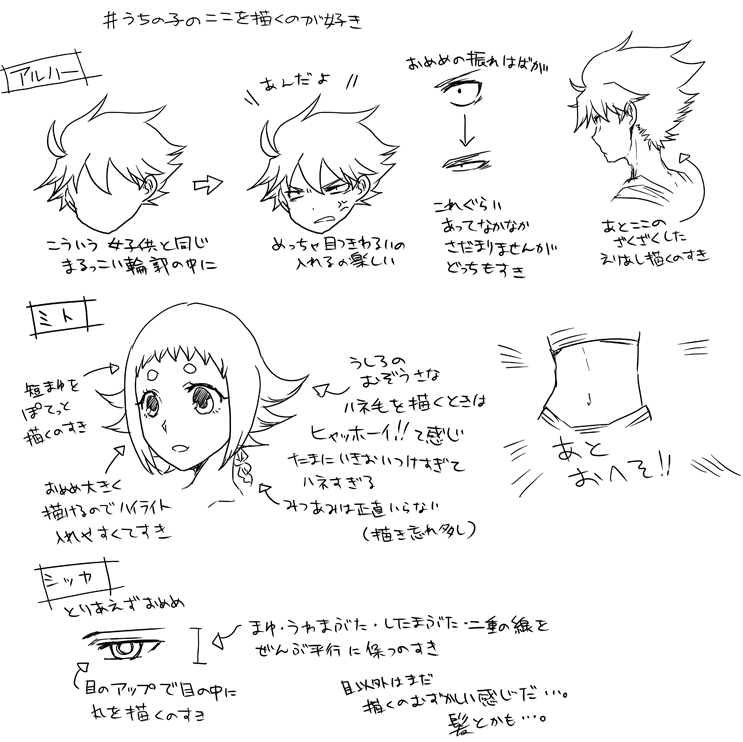 #うちの子のここを描くのが好き
アルハー
あんだよ
こういう 女子供と同じ
まるっこい輪郭の中に
めっちゃ目つきわるいの
入れるの楽しい
おめめの振れはばが
これぐらい
あってなかなか
さだまりませんが
どっちもすき
あとここの
ざくざくした
えりあし描くのすき
ミト
短まゆを
ぽてっと
描くのすき
おめめ大きく
描けるのでハイライト
入れやすくてすき
うしろの
むぞうさな
ハネ毛を描くときは
ヒャッホーイ!!て感じ
たまにいきおいつけすぎて
ハネすぎる
みつあみは正直いらない
(描き忘れ多し)
あと
おへそ!!
シッカ
とりあえずおめめ
まゆ・うわまぶた・したまぶた・二重の線を
ぜんぶ平行に保つのすき
目のアップで目の中に
れを描くのすき
目以外はまだ
描くのむずかしい感じだ…。
髪とかも…。